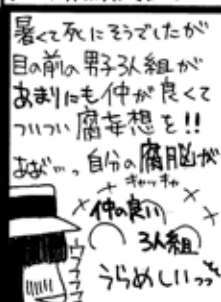 暑くて死にそうでしたが
目の前の男子3人組が
あまりにも仲が良くて
ついつい腐妄想を!!
ああ…っ自分の腐脳が
キャッキャ
仲の良い
3人組
うらめしいっっ